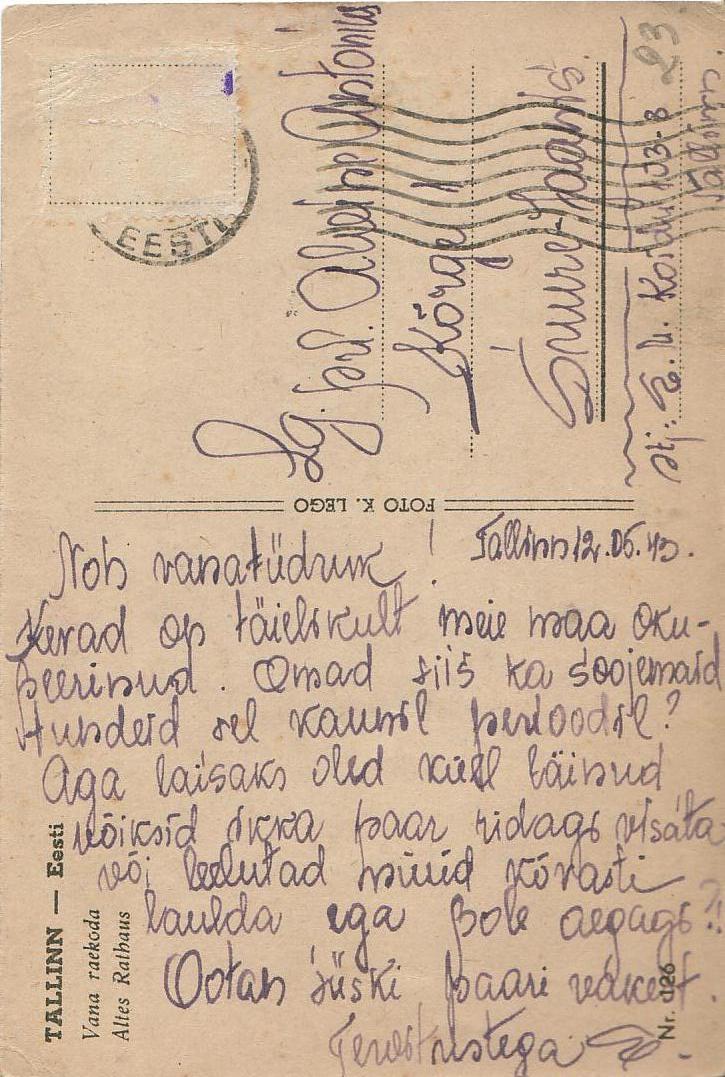 EESTI
Lg. prl. Alviine Antonius
Kõrgel
Suure-Jaanis
23
Tallinn
FOTO K. LEGO
Tallinn 12.05.43.
Noh vanatüdruk!
Kevad on täielikult meie maa oku-
peerinud. Omad siis ka soojemaid
tundeid sel kaunil perioodil?
Aga laisaks oled küll läinud
võiksid ikka paar ridagi visata
või leelutad nüüd kõvasti
laulda ega pole aegagi?!
Ootan siiski paari väikest.
Tervitustega
TALLINN — Eesti
Vana raekoda
Altes Rathaus
Nr. U26